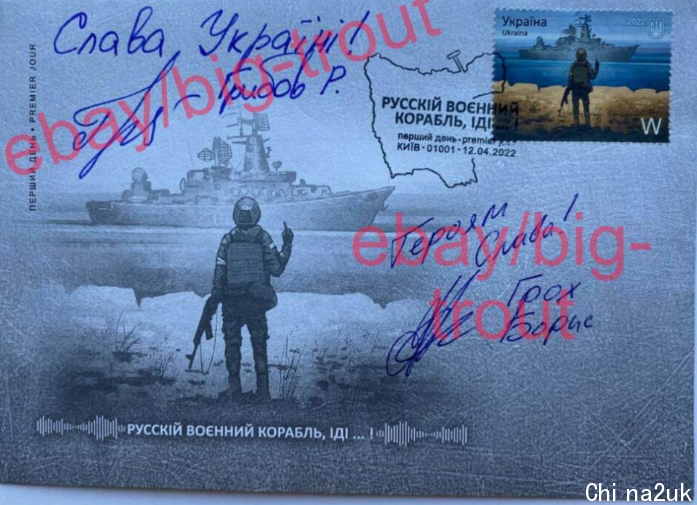 Слава Україні!
Грибов Р.
ПЕРШИЙ ДЕНЬ • PREMIER JOUR
Україна
Ukraine
2022
W
РУССКІЙ ВОЄННИЙ
КОРАБЛЬ, ІДІ ...
перший день · premier jour
КИЇВ · 01001 · 12.04.2022
ebay/big-trout
Героям
Слава!
ebay/big-
trout
Грох
Борис
РУССКІЙ ВОЄННИЙ КОРАБЛЬ, ІДІ ... !
Chi na2uk